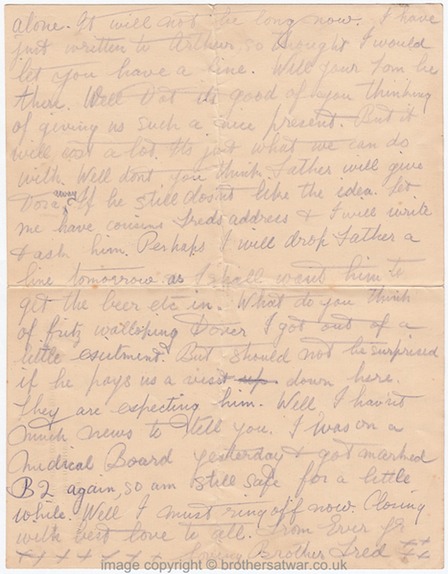 alone. It will not be long now. I have
just written to Arthur so thought I would
let you have a line. Will your Tom be
there. Well Dot its good of you thinking
of giving us such a nice present. But it
will cost a lot. Its just what we can do
with. Well dont you think Father will give
Dora away. If he still doesnt like the idea. Let
me have cousin Freds address & I will write
& ask him. Perhaps I will drop Father a
line tomorrow as I shall want him to
get the beer etc in. What do you think
of fritz walloping Dover I got out of a
little exsitment. But should not be surprised
if he pays us a visit up down here.
They are expecting him. Well I havnt
much news to tell you. I was on a
Medical Board yesterday & got marked
B2 again, so am still safe for a little
while. Well I must ring off now. Closing
with best love to all. From Ever Yr
x x x x x x x Loving Brother Fred x x
image copyright © brothersatwar.co.uk